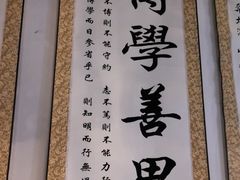 尚學善思
不博則不能守約 志不篤則不能力行
博學而日參省乎己 則知明而行無過